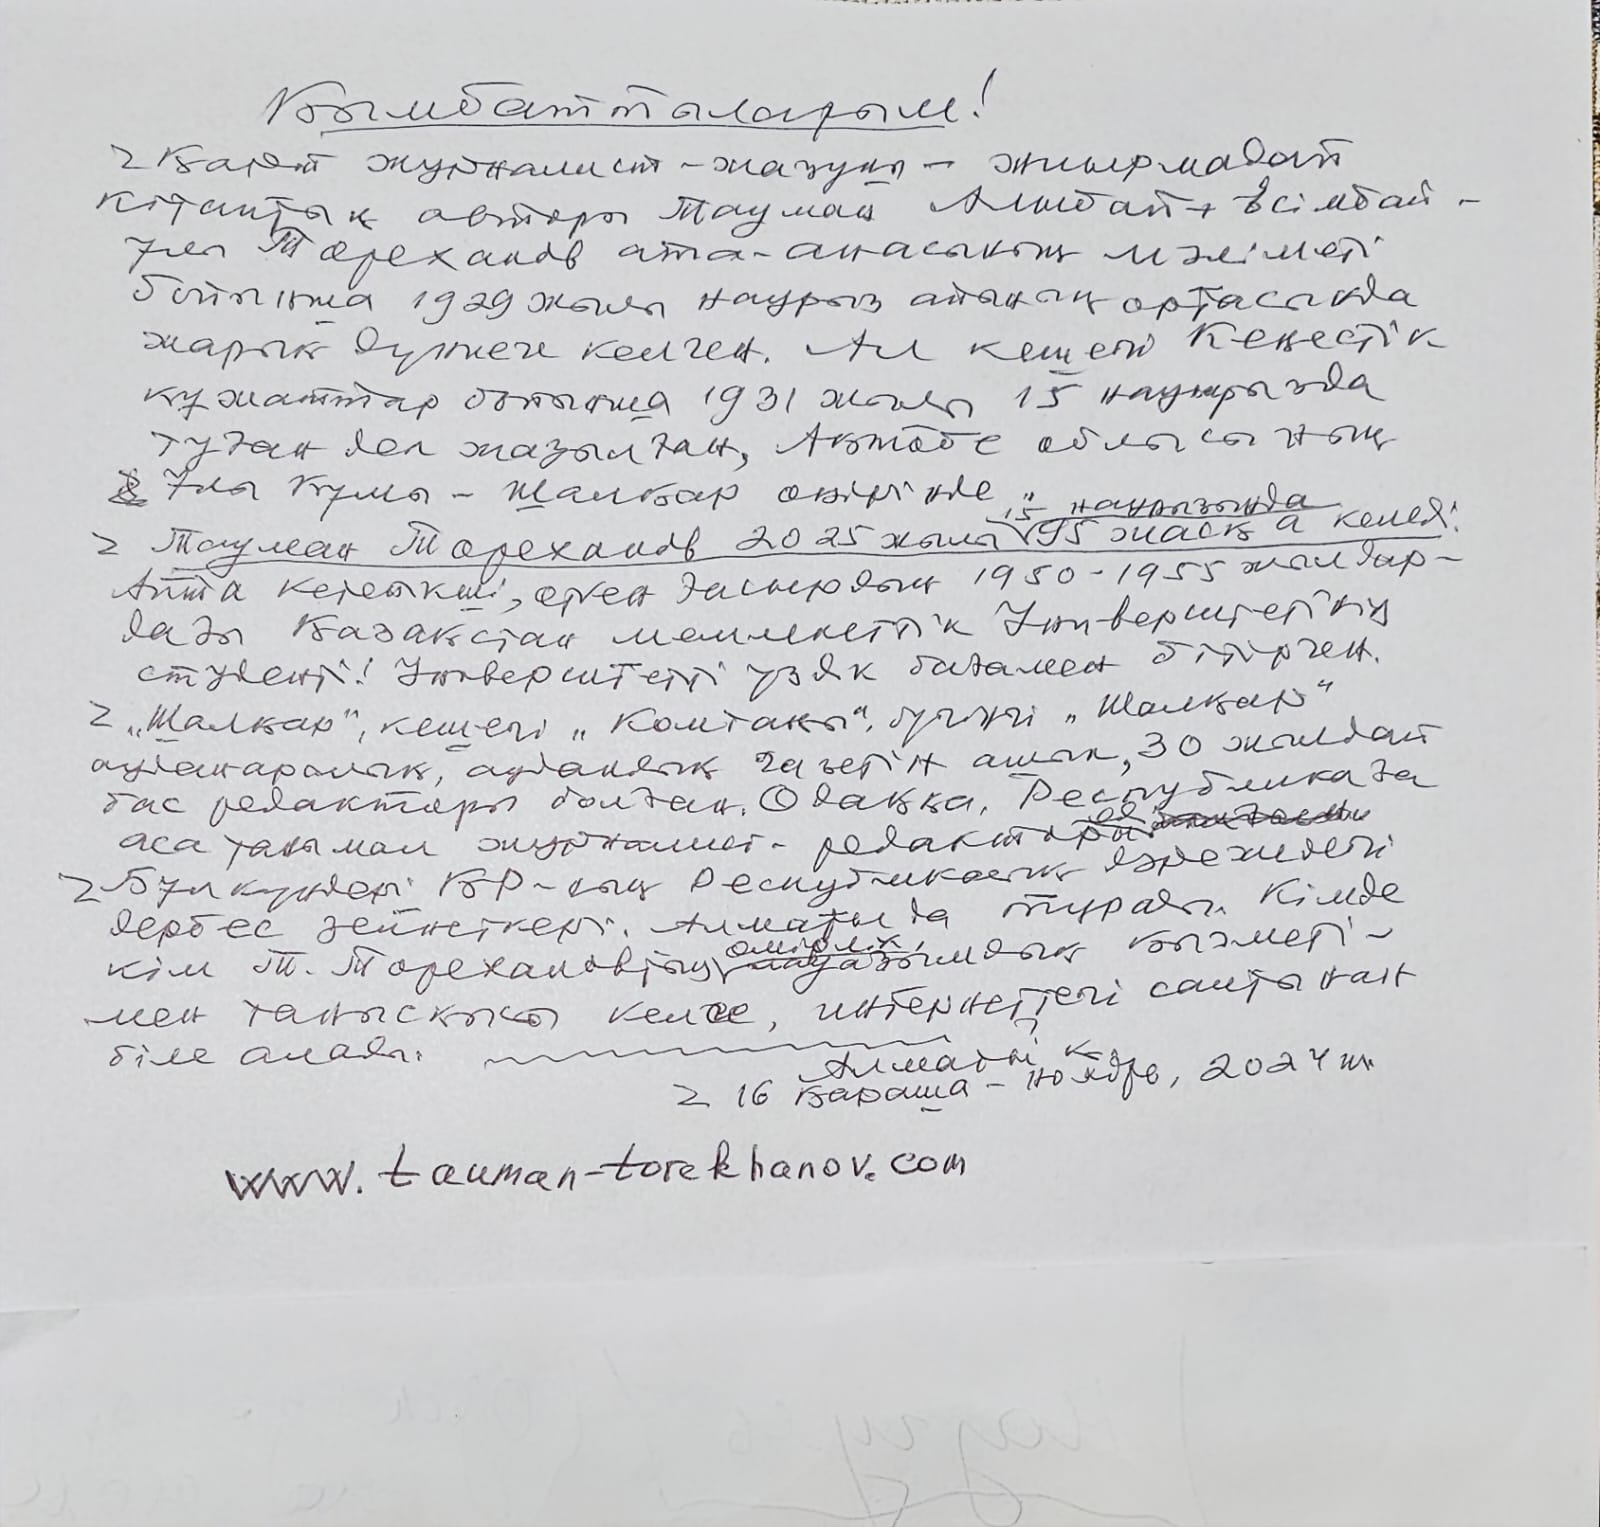 Қымбаттыларым!
Қарт журналист-жазушы - жиырмадай
кітаптың авторы Тауман Алыбай + Есімбай-
ұлы Төреханов ата-анасының мәліметі
бойынша 1929 жылы наурыз айының ортасында
жарық дүниеге келген. Ал кешегі Кеңестік
құжаттар бойынша 1931 жылы 15 наурызда
туған деп жазылған, Ақтөбе облысының
Ұлы құмы - Шалқар өңірінде
15 наурызында
Тауман Төреханов 2025 жылы 95 жасқа келеді.
Айта кетейікші, өткен ғасырдың 1950-1955 жылдар-
дағы Қазақстан мемлекеттік Университетінің
студенті! Университетті үздік бағамен бітірген.
„Шалқар", кешегі „Комтаңы", бүгінгі „Шалқар"
ауданаралық, аудандық газетін ашып, 30 жылдай
бас редакторы болған. Одаққа, Республикаға
аса танымал журналист-редактор
Бұл күндері ҚР-ның Республикалық дәрежедегі
дербес зейнеткері. Алматыда тұрады. Кімде
өмірлік,
кім Т. Төрехановтың лауазымдық қызметі-
мен танысқысы келсе, интернеттегі сайтынан
біле алады.
Алматы қ
16 қараша - ноябрь, 2024 ж.
www.tauman-torekhanov.com